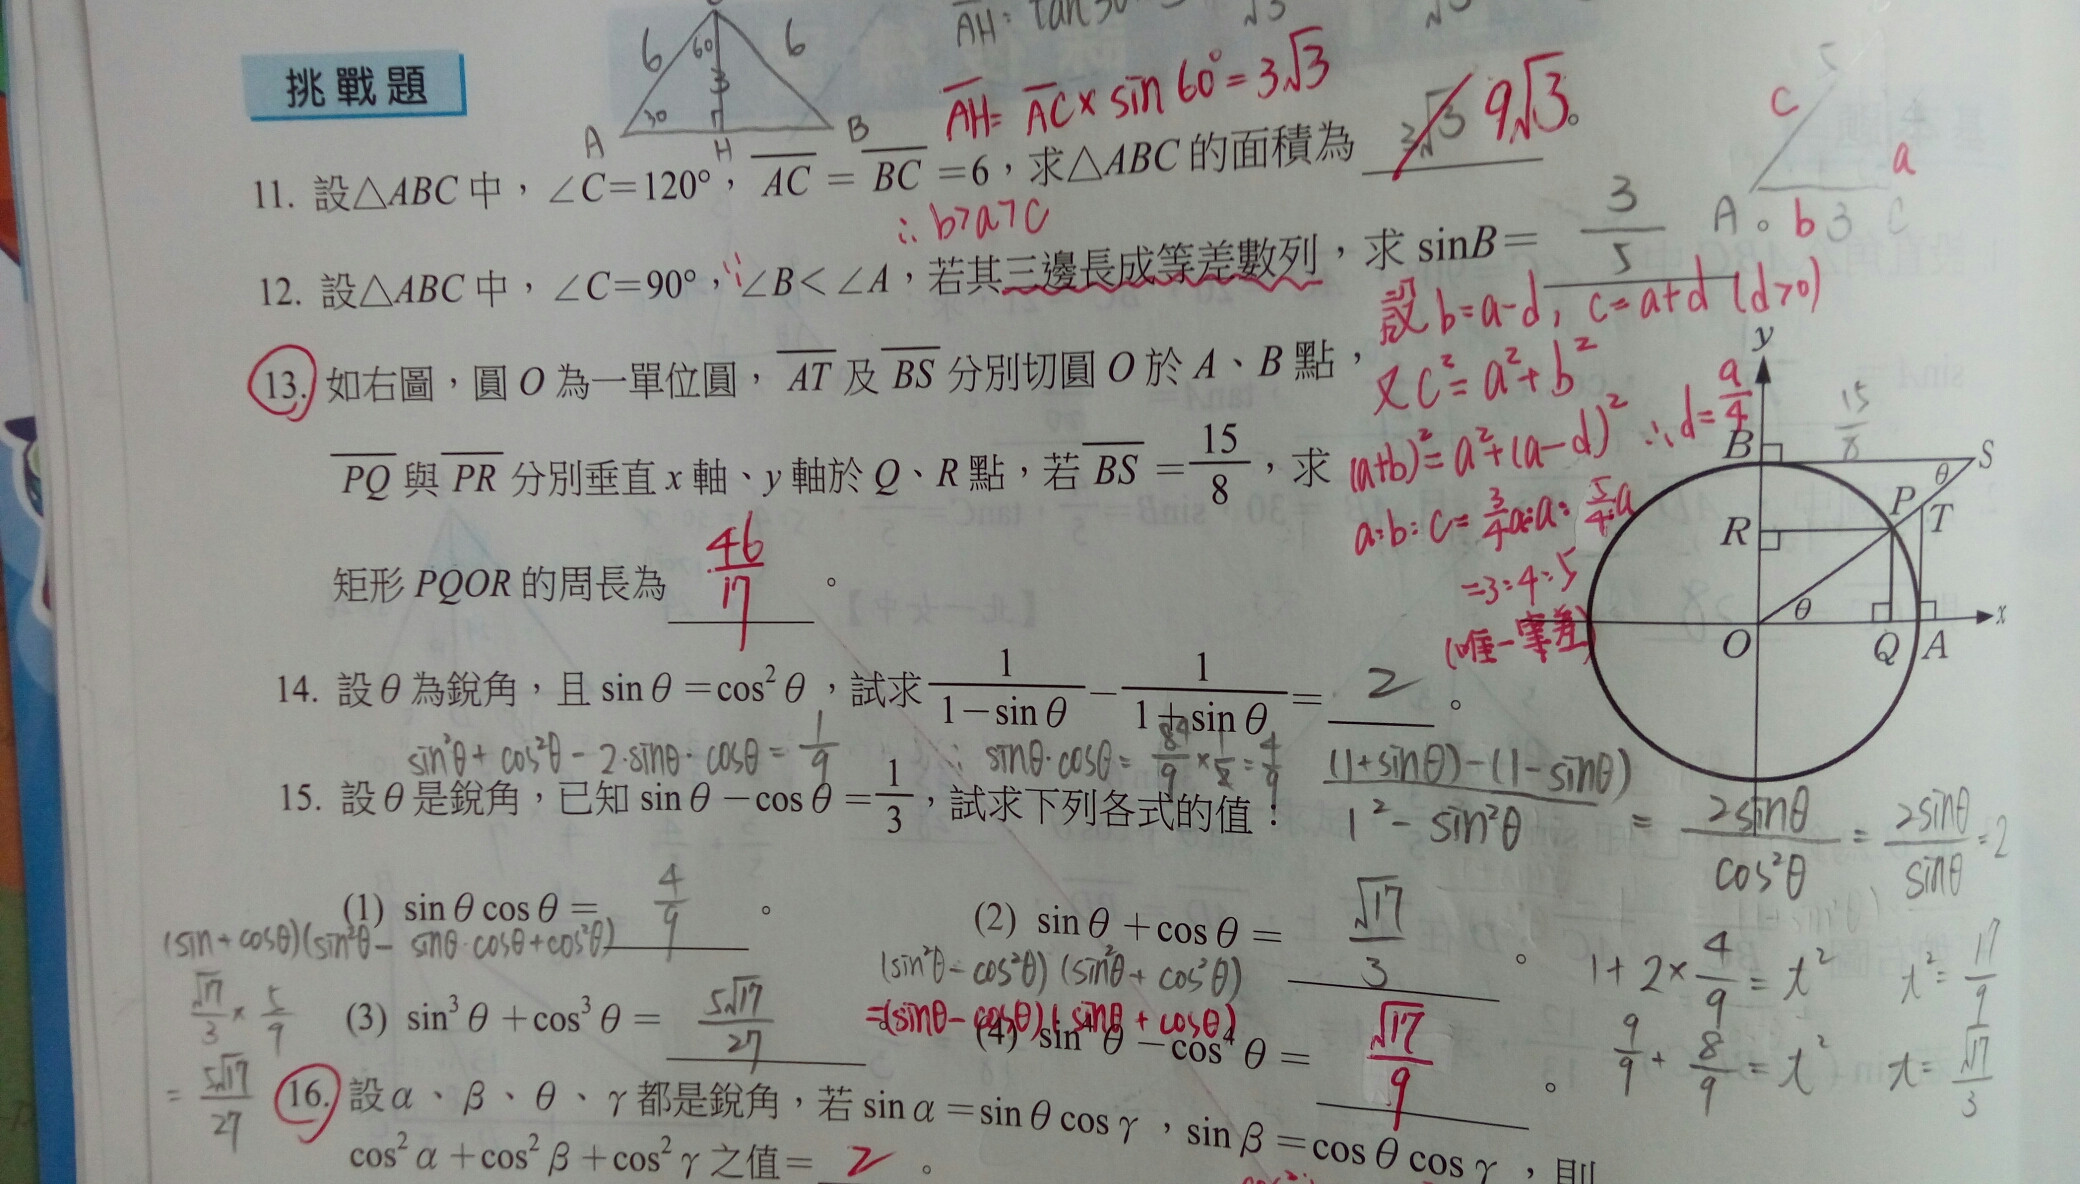 6 60 6
3
30
A H B
AH: tan30
√3 √3
挑戰題
AH = AC × sin 60° = 3√3
11. 設△ABC中，∠C=120°，AC = BC =6，求△ABC的面積為 9√3。
∴ b>a>c
5
c
a
A b 3 C
12. 設△ABC中，∠C=90°，∵∠B<∠A，若其三邊長成等差數列，求 sinB= 3/5 。
設 b=a-d, c=a+d (d>0)
又 c²=a²+b²
(a+b)²=a²+(a-d)² ∴d=a/4
a:b:c= 3/4a:a: 5/4a
=3:4:5
(唯一等差)
13. 如右圖，圓O為一單位圓，AT及BS分別切圓O於A、B點，
PQ與PR分別垂直x軸、y軸於Q、R點，若BS = 15/8，求
矩形PQOR的周長為 46/17 。
y
15/8
B S
θ
P
R T
θ
O Q A x
14. 設θ為銳角，且 sin θ =cos² θ，試求 1/(1−sin θ) − 1/(1+sin θ) = 2 。
((1+sinθ)-(1-sinθ))/(1²-sin²θ) = 2sinθ/cos²θ = 2sinθ/sinθ =2
sin²θ+cos²θ-2·sinθ·cosθ=1/9 ∴ sinθ·cosθ= 8/9×1/2=4/9
15. 設θ是銳角，已知 sin θ −cos θ = 1/3，試求下列各式的值：
(1) sin θ cos θ = 4/9 。
(2) sin θ +cos θ = √17/3 。
1+2×4/9=t² t²=17/9
9/9+8/9=t² t=√17/3
(sin+cosθ)(sin²θ-sinθ·cosθ+cos²θ)
√17/3 × 5/9
= 5√17/27
(3) sin³ θ +cos³ θ = 5√17/27
(sin²θ-cos²θ)(sin²θ+cos²θ)
=(sinθ-cosθ)(sinθ+cosθ)
(4) sin⁴ θ −cos⁴ θ = √17/9 。
16. 設α、β、θ、γ都是銳角，若 sin α =sin θ cos γ，sin β =cos θ cos γ，則
cos² α +cos² β +cos² γ 之值= 2 。